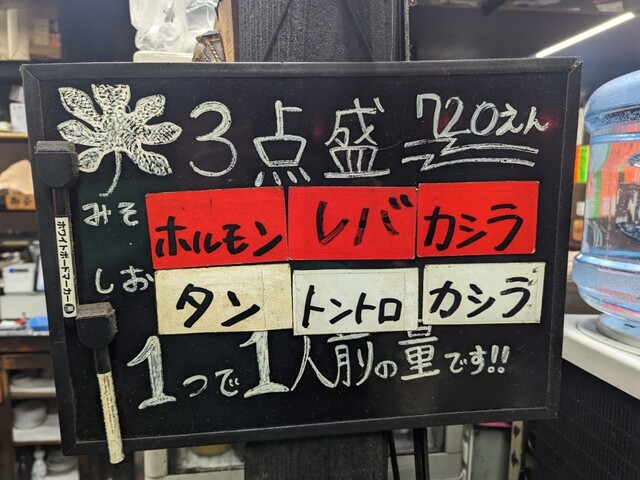 3点盛 720えん
みそ ホルモン レバ カシラ
しお タン トントロ カシラ
1つで1人前の量です!!
ホワイトボードマーカー